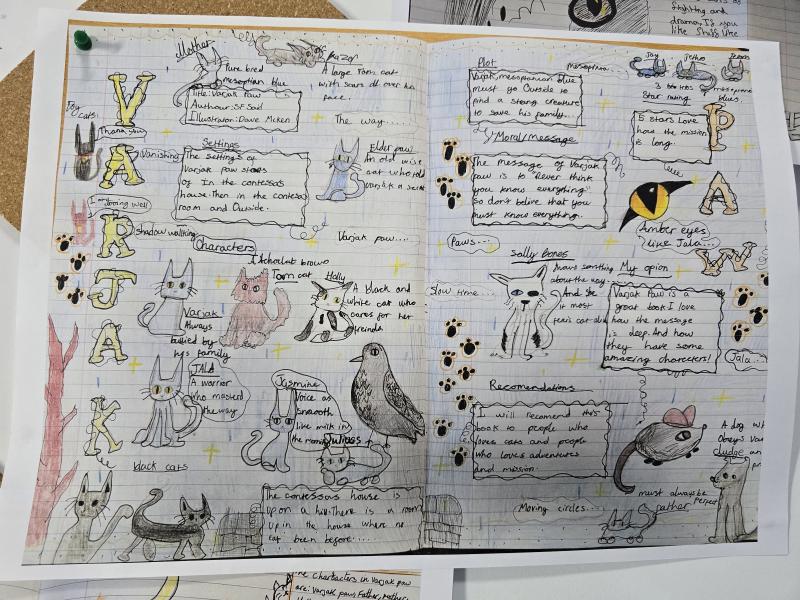 Mother
Pure bred
mesoptian blue
Razor
A large Tom cat
with scars all over his
face.
The way.....
Title: Varjak Paw
Authour: SF Said
VARJAK
Joy
cats
Thank you
Vanishing
Settings
The settings of
Varjak Paw
of In the contessa's
house. Then in the contessa
room and Outside.
Elder paw
An old wise
cat who told
varjak a
I am
doing well
Shadow walking
Varjak paw....
Characters
A chocolat brown
Tom cat
Holly
A black and
white cat who
cares for her
freinds
Varjak
Always
bullied by
his family
JALA
A warrior
who masterd
the way
Jasmine
Voice as
smooth
like milk in
the morning
Julius
black cats
The contessas house is
upon a hill. There is a room
up in the house where no
cat been before....
Plot
Varjak, mesoptanian blue
must go Outside to
find a strong creature
to save his family.
mesoptanian
Jay
Jethro
Jerome
blues.
Star rating
5 stars Love
how the mission
is long.
PAW
Moral/message
The message of Varjak
paw is to "never think
you know everything".
So don't believe that you
must know everything.
Amber eyes
like Jala...
Paws....
Sally Bones
Knows something
about the way...
And she
is most
Slow time...
My opion
Varjak Paw is a
great book I love
how the message
is deep. And how
they have some
amazing characters!
Jala...
Recomendations
I will recomend this
book to people who
loves cats and people
who loves adventures
and mission.
A dog
Obeys
Moving circles....
must always be
perfect
father
fighting and
drama, If you
like
The Charbcters in Varjak paw
are: Varjak paw, Father, Mother,